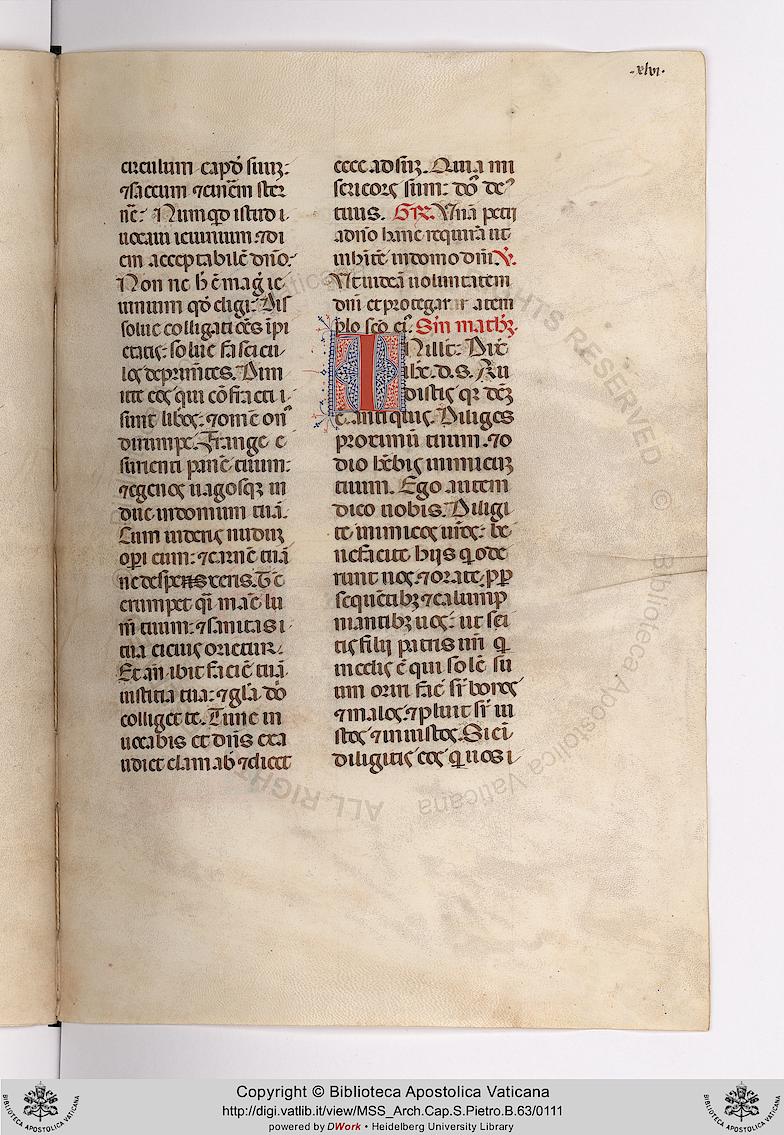 .xlvi.
circulum capd̄ suuȝ:
⁊saccum ⁊cinēm ster
nē: Nunqd̄ istud i
uocaui ieiunium ⁊di
em acceptabilē dn̄o:
Non ne h̄ ē mag̣ ie
iunium qd̄ elegi. Dis
solue colligatiōēs īpi
etatis: solue fascicu
los deprimētes. Dim
itte eos qui cōfracti
sunt libos: ⁊ōme on̄
dirumpe. Frange e
surienti panē tuum:
⁊egenos uagosqȝ in
duc in domum tuā.
Cum uideris nuduȝ
op̄i eum: ⁊carnē tuā
ne despexeris. Tc̄
erumpet qi mane lu
m̄ tuum: ⁊sanitas
tua citius orietur.
Et an̄ ibit faciē tuā
iustitia tua: ⁊gl̄a dō
colliget te. Tunc in
uocabis et dn̄s exa
udiet clamab̄ ⁊dicet
ecce adsuȝ. Quia mi
sericors sum: dō de⁹
tuus. Gr̄. Vnā petii
adn̄o hanc requirā ut
inhitē in domo dn̄i V̄.
Vt uideā uoluntatem
dn̄i et protegar a tem
plo scō ei⁹. Sm̄ math̄ȝ.
IN illo t̄: Dix̄
ih̄c. d. s. Au
distis qr dc̄ȝ
ē antiquis. Diliges
proximū tuum. ⁊o
dio hēbis inimicuȝ
tuum. Ego autem
dico uobis: Diligi
te inimicos ur̄os: be
nefacite hijs q̄ ode
runt uos: ⁊orate, ꝓ ꝑ
sequētibȝ ⁊calump̄
mantibȝ uos: ut sci
tis filij patris ur̄i q̄
in celis ē qui solē su
um oriri fac̄ sr̄ bonos
⁊malos: ⁊pluit sr̄ iu
stos ⁊iniustos. Si ei
diligitis eos q̄ uos
ALL RIGHTS RESERVED © Biblioteca Apostolica Vaticana
Copyright © Biblioteca Apostolica Vaticana
http://digi.vatlib.it/view/MSS_Arch.Cap.S.Pietro.B.63/0111
powered by DWork • Heidelberg University Library
BIBLIOTECA APOSTOLICA VATICANA
BIBLIOTECA APOSTOLICA VATICANA